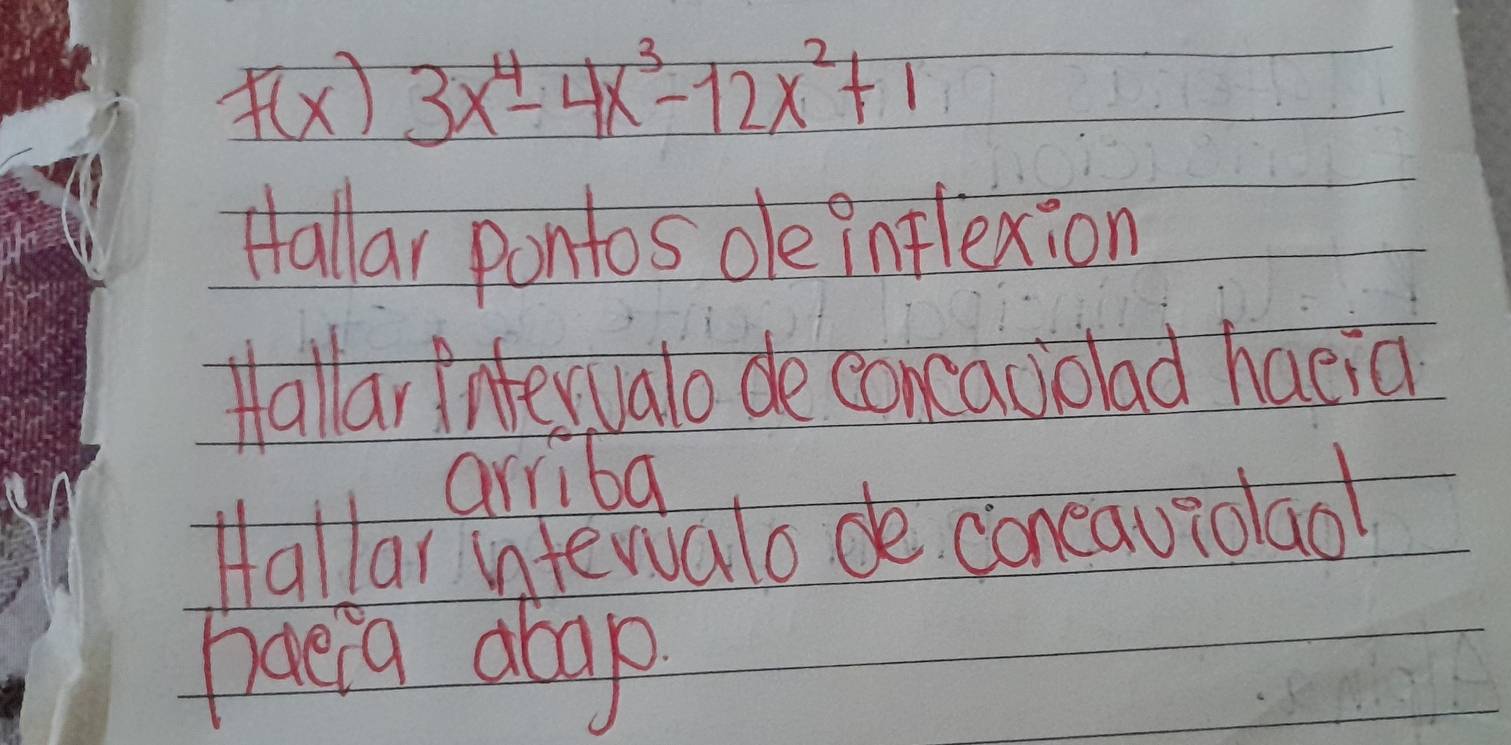 f(x) 3x⁴-4x³-12x²+1
Hallar pontos de inflexion
Hallar intervalo de concavidad hacia
arriba
Hallar intervalo de concavidad
hacia abajo.